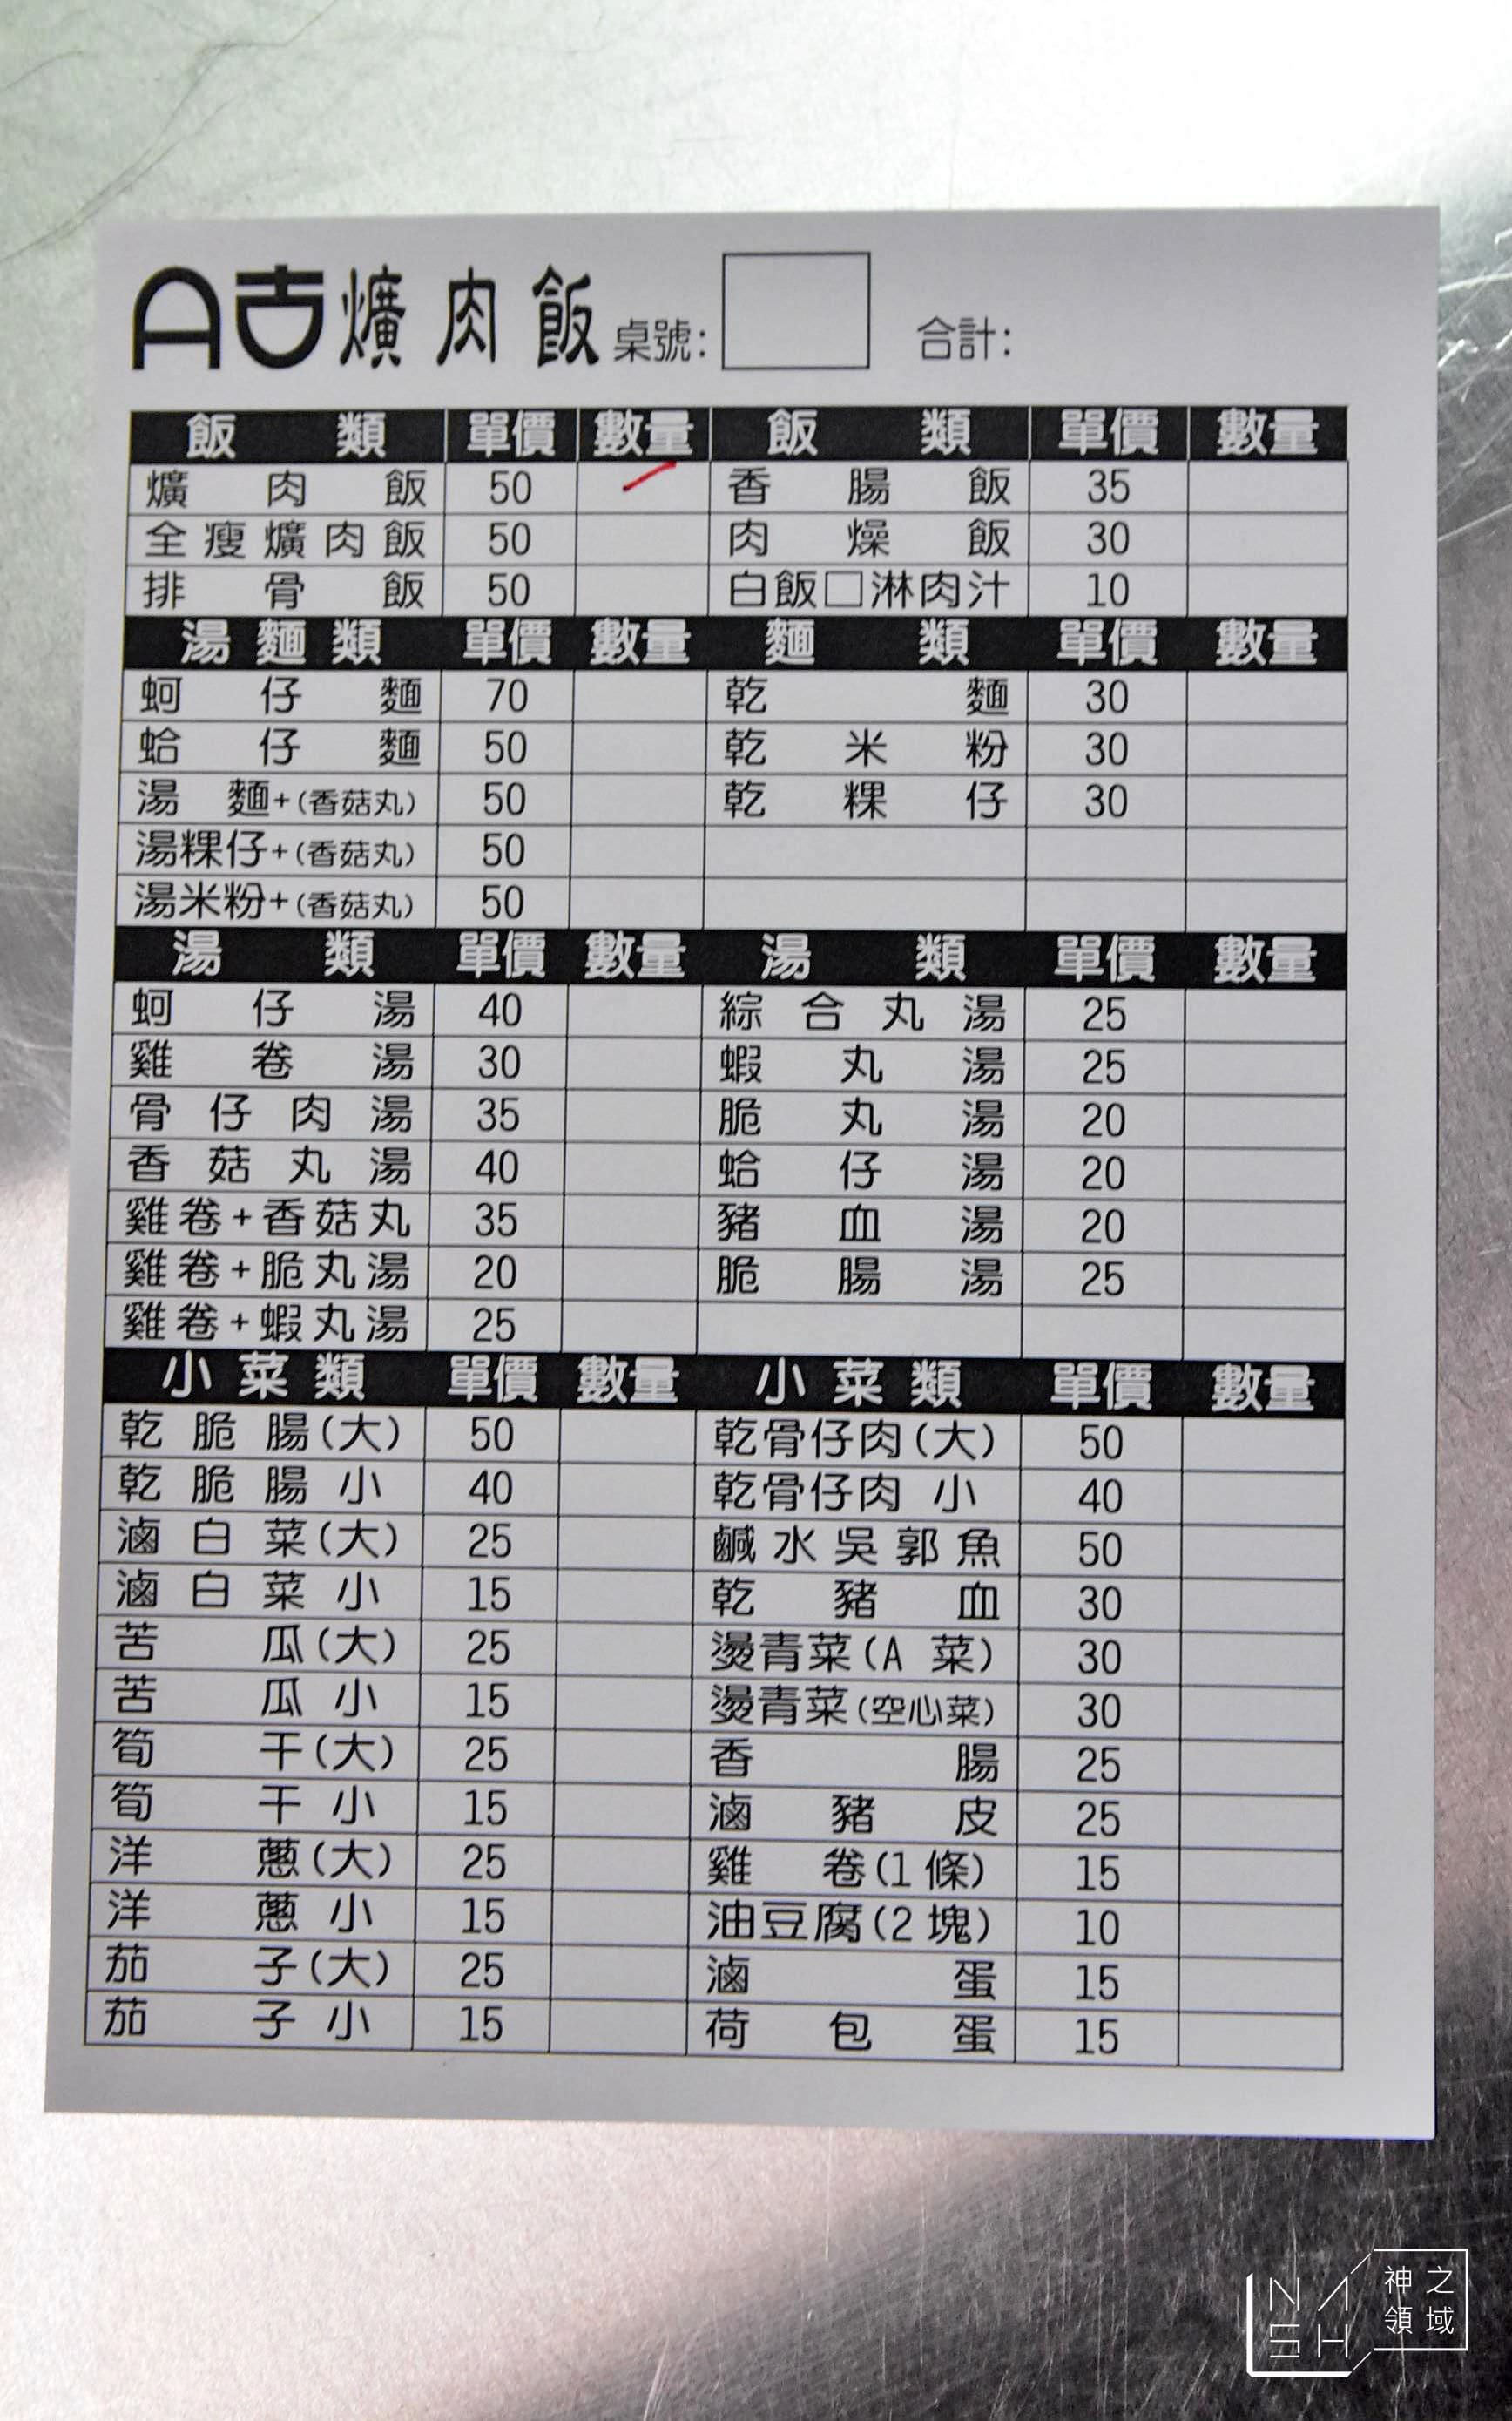 A吉爌肉飯 桌號: 合計:
飯類 單價 數量 飯類 單價 數量
爌肉飯 50 香腸飯 35
全瘦爌肉飯 50 肉燥飯 30
排骨飯 50 白飯□淋肉汁 10
湯麵類 單價 數量 麵類 單價 數量
蚵仔麵 70 乾麵 30
蛤仔麵 50 乾米粉 30
湯麵+(香菇丸) 50 乾粿仔 30
湯粿仔+(香菇丸) 50
湯米粉+(香菇丸) 50
湯類 單價 數量 湯類 單價 數量
蚵仔湯 40 綜合丸湯 25
雞卷湯 30 蝦丸湯 25
骨仔肉湯 35 脆丸湯 20
香菇丸湯 40 蛤仔湯 20
雞卷+香菇丸 35 豬血湯 20
雞卷+脆丸湯 20 脆腸湯 25
雞卷+蝦丸湯 25
小菜類 單價 數量 小菜類 單價 數量
乾脆腸(大) 50 乾骨仔肉(大) 50
乾脆腸小 40 乾骨仔肉小 40
滷白菜(大) 25 鹹水吳郭魚 50
滷白菜小 15 乾豬血 30
苦瓜(大) 25 燙青菜(A菜) 30
苦瓜小 15 燙青菜(空心菜) 30
筍干(大) 25 香腸 25
筍干小 15 滷豬皮 25
洋蔥(大) 25 雞卷(1條) 15
洋蔥小 15 油豆腐(2塊) 10
茄子(大) 25 滷蛋 15
茄子小 15 荷包蛋 15
NASH 神之領域